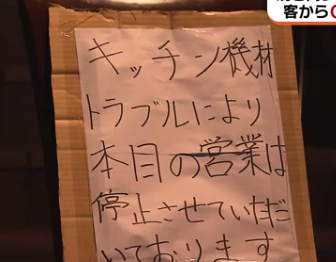 客から
キッチン機材
トラブルにより
本日の営業は
停止させていただ
いております